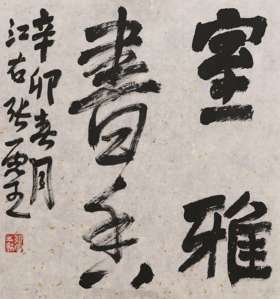 室雅
書香
辛卯春月
江右張